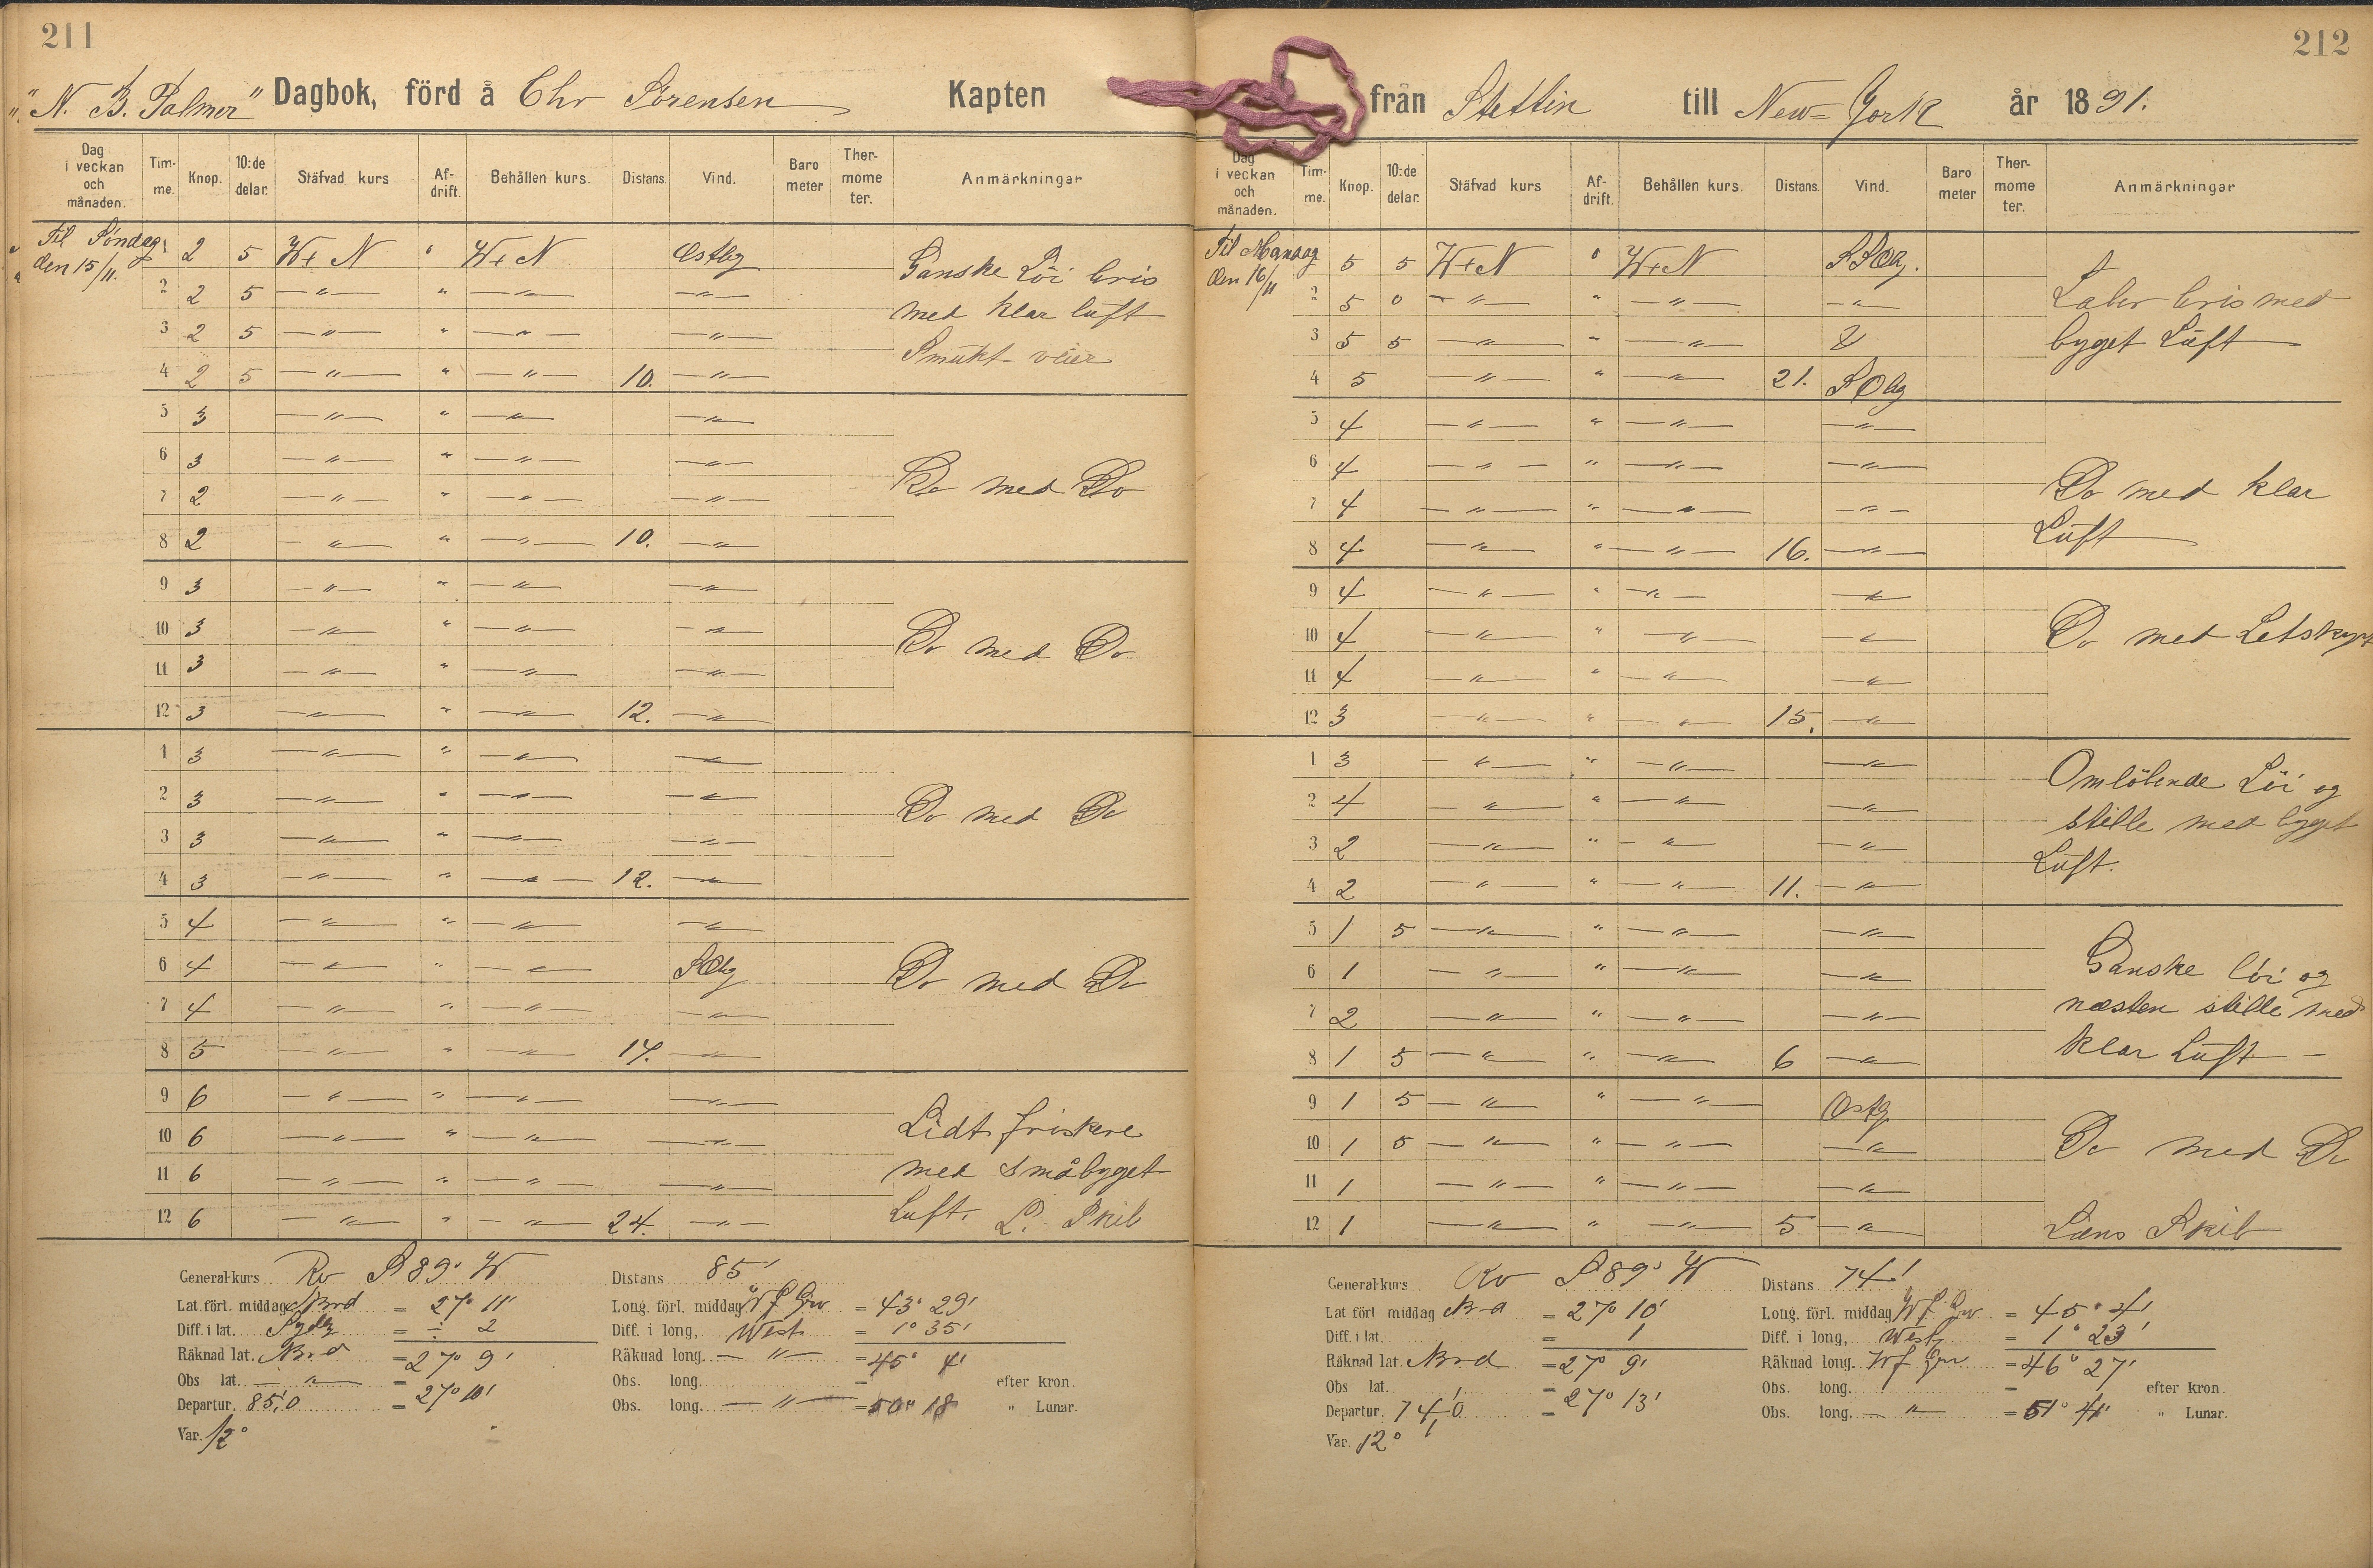 211
"N. B. Palmer" Dagbok, förd å Chr Sörensen Kapten
Dag i veckan och månaden. Tim-me. Knop. 10:de delar. Stäfvad kurs Af-drift. Behållen kurs. Distans. Vind. Baro meter Ther-mome ter. Anmärkningar
Til Söndag den 15/11.
1 2 5 W t N " W t N Östlig
2 2 5 — " — " — " — — " —
3 2 5 — " — " — " — — " —
4 2 5 — " — " — " — 10. — " —
Ganske Löi bris
med klar luft
Smukt veier
5 3 — " — " — " — — " —
6 3 — " — " — " — — " —
7 2 — " — " — " — — " —
8 2 — " — " — " — 10. — " —
Do med Do
9 3 — " — " — " — — " —
10 3 — " — " — " — — " —
11 3 — " — " — " — — " —
12 3 — " — " — " — 12. — " —
Do med Do
1 3 — " — " — " — — " —
2 3 — " — " — " — — " —
3 3 — " — " — " — — " —
4 3 — " — " — " — 12. — " —
Do med Do
5 4 — " — " — " — — " —
6 4 — " — " — " — SOlig
7 4 — " — " — " — — " —
8 5 — " — " — " — 17. — " —
Do med Do
9 6 — " — " — " — — " —
10 6 — " — " — " — — " —
11 6 — " — " — " — — " —
12 6 — " — " — " — 24. — " —
Lidt friskere
med småbyget
Luft. L. Skib
General-kurs Rv S 89° W Distans 85'
Lat. förl. middag Nord = 27° 11' Long. förl. middag W f Grw = 43° 29'
Diff. i lat. Sydlig = ÷ 2 Diff. i long, West = 1° 35'
Räknad lat. Nord = 27° 9' Räknad long. — " — = 45° 4'
Obs lat. — " — = 27° 10' Obs. long. = efter kron.
Departur. 85,0 Obs. long. — " — = 50° 18 " Lunar.
Var. 12°
212
från Stettin till New-York år 1891.
Dag i veckan och månaden. Tim-me. Knop. 10:de delar. Stäfvad kurs Af-drift. Behållen kurs. Distans. Vind. Baro meter Ther-mome ter. Anmärkningar
Til Mandag den 16/11
5 5 W t N 0 W t N SSOlig.
2 5 0 — " — " — " — — " —
3 5 5 — " — " — " —
4 5 — " — " — " — 21. SOlig
Laber bris med
byget Luft
5 4 — " — " — " — — " —
6 4 — " — " — " — — " —
7 4 — " — " — " — — " —
8 4 — " — " — " — 16. — " —
Do med klar
Luft
9 4 — " — " — " — — " —
10 4 — " — " — " — — " —
11 4 — " — " — " — — " —
12 3 — " — " — " — 15. — " —
Do med Letskyet
1 3 — " — " — " — — " —
2 4 — " — " — " — — " —
3 2 — " — " — " — — " —
4 2 — " — " — " — 11. — " —
Omlöbende Löi og
stille med byget
Luft.
5 1 5 — " — " — " — — " —
6 1 — " — " — " — — " —
7 2 — " — " — " — — " —
8 1 5 — " — " — " — 6 — " —
Ganske löi og
næsten stille med
klar Luft —
9 1 5 — " — " — " — Ostlig
10 1 5 — " — " — " — — " —
11 1 — " — " — " — — " —
12 1 — " — " — " — 5 — " —
Do med Do
Læns Skib
General-kurs Rv S 89° W Distans 74'
Lat förl middag Nrd = 27° 10' Long. förl. middag W f Grw = 45° 4'
Diff. i lat. = 1' Diff. i long, Westlig = 1° 23'
Räknad lat. Nord = 27° 9' Räknad long. W f Grw = 46° 27'
Obs lat. = 27° 13' Obs. long. = efter kron.
Departur. 74,0 Obs. long. — " — = 51° 41' " Lunar.
Var. 12°